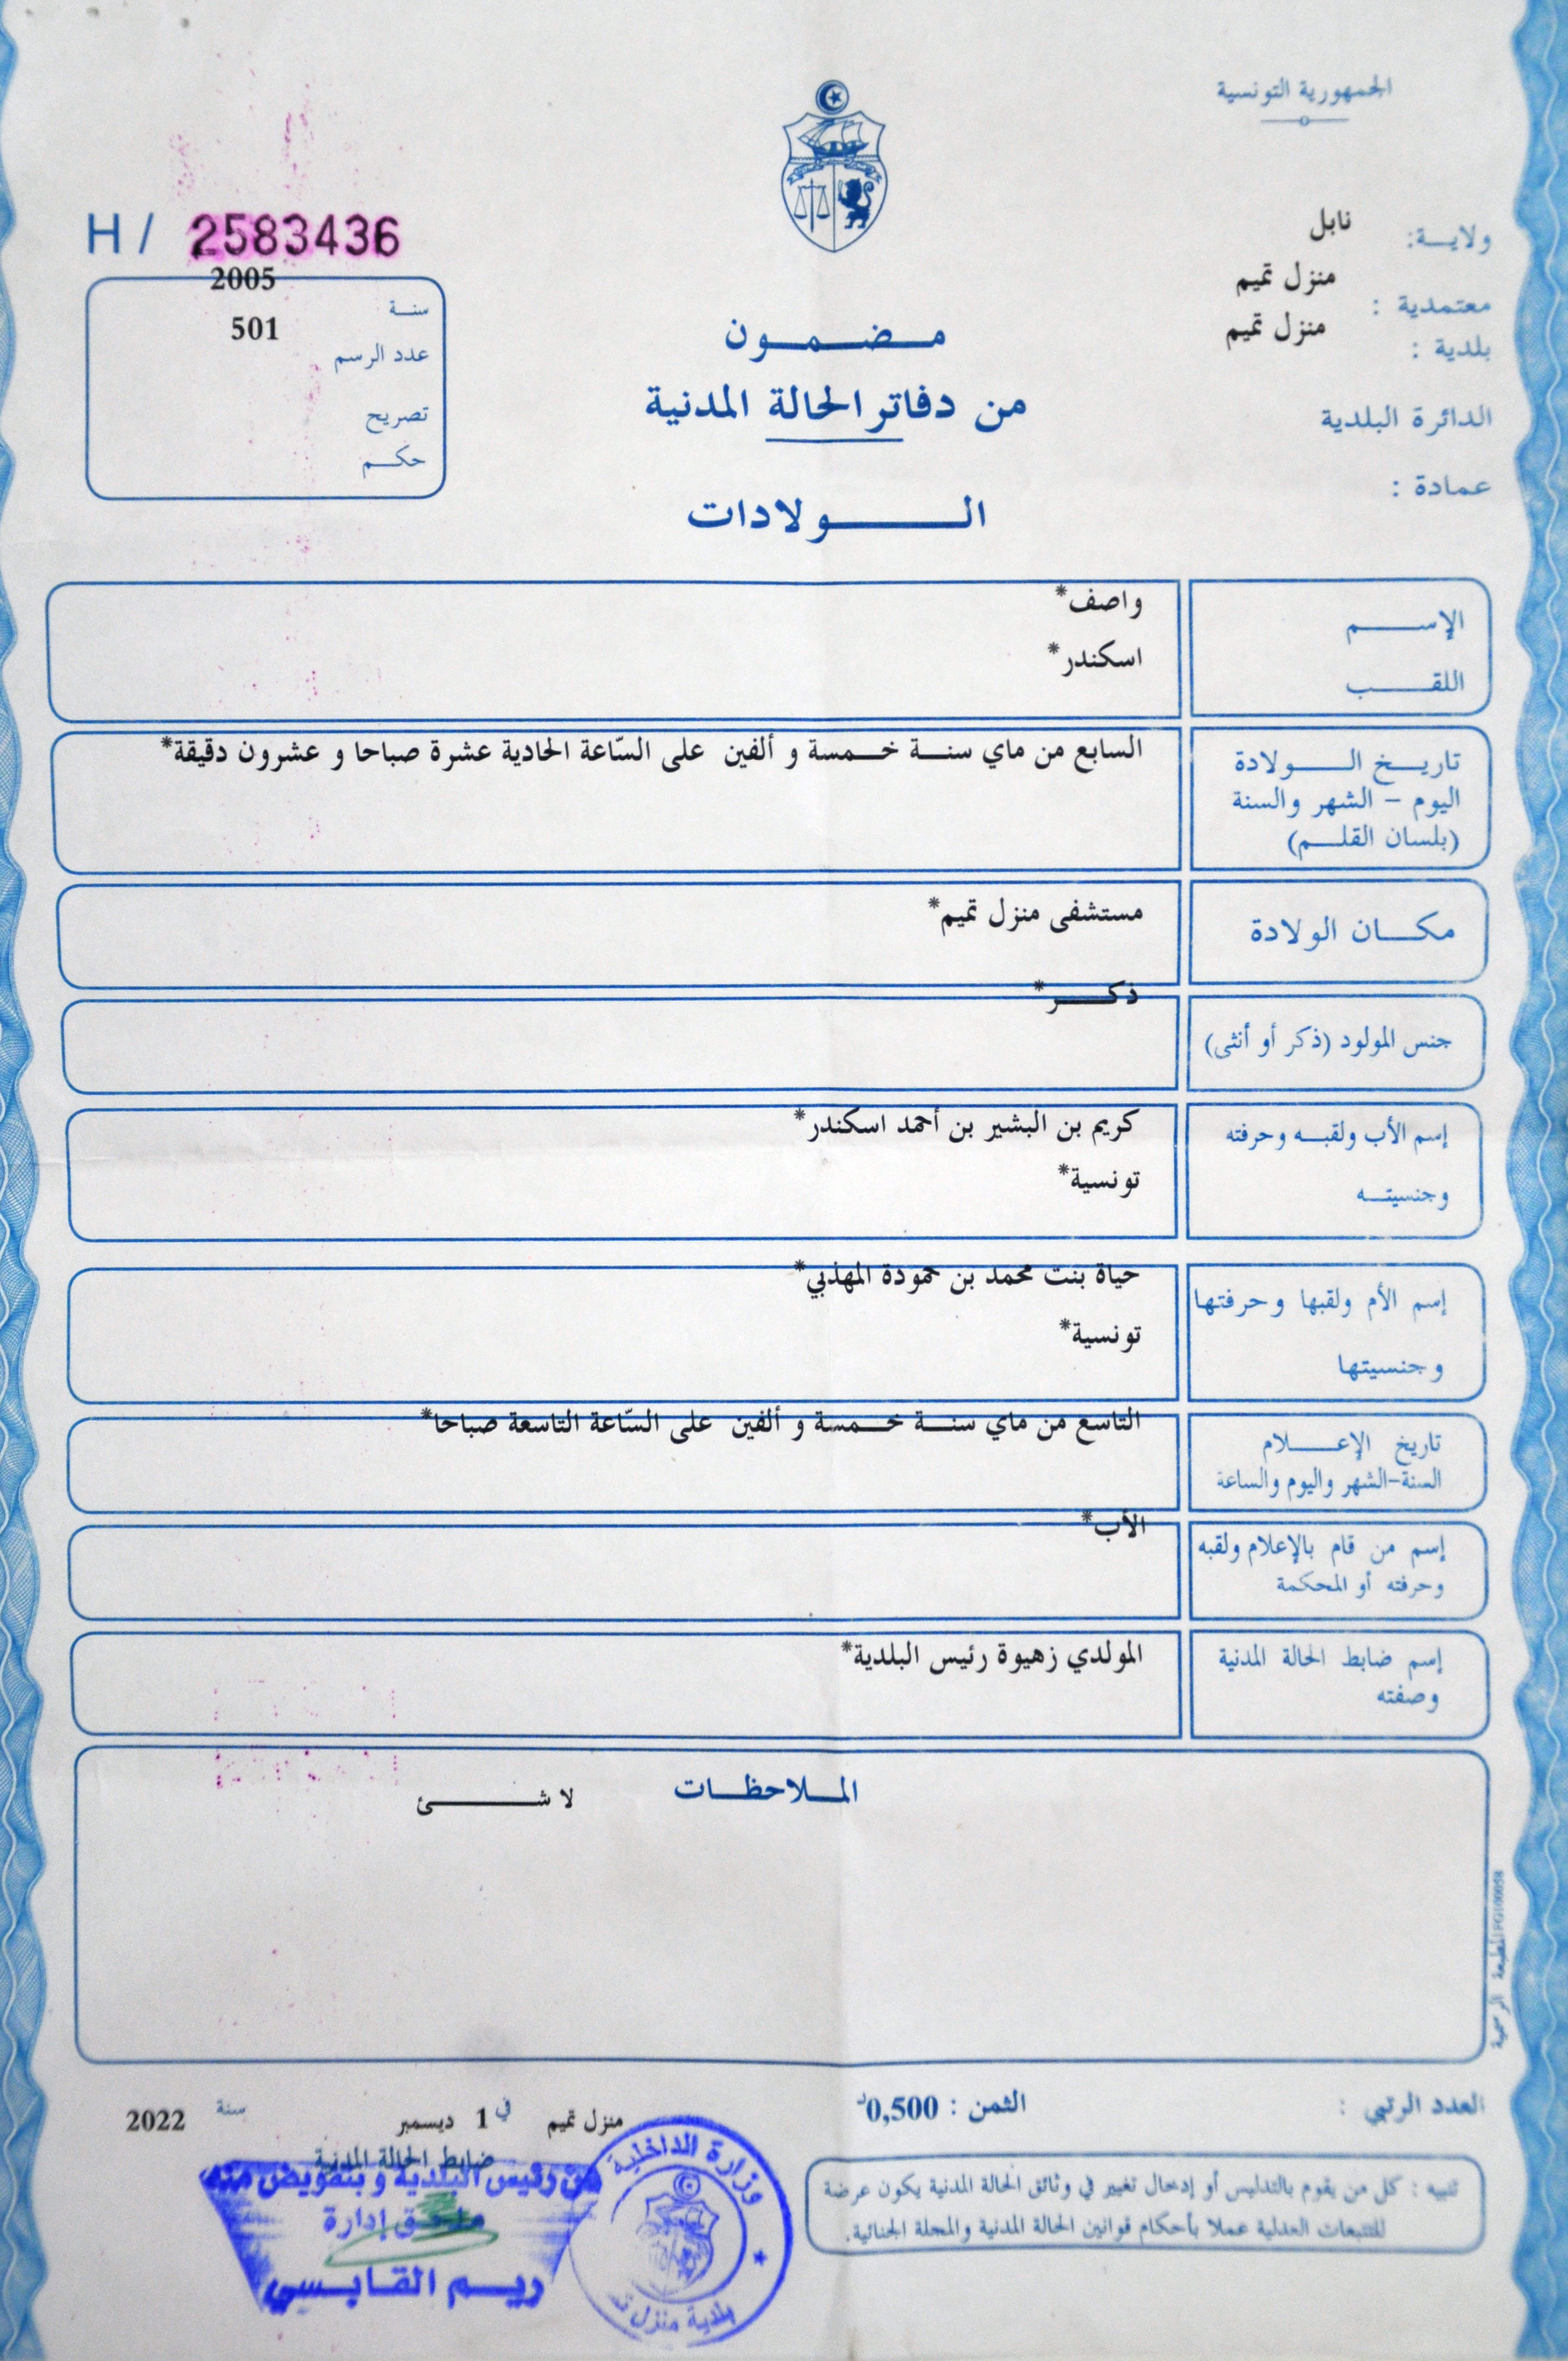 الجمهورية التونسية
ولايـــة: نابل
معتمدية : منزل تميم
بلدية : منزل تميم
الدائرة البلدية
عمادة :
H / 2583436
سنة 2005
عدد الرسم 501
تصريح
حكم
مضمون
من دفاتر الحالة المدنية
الولادات
الإسم واصف*
اللقب اسكندر*
تاريخ الولادة السابع من ماي سنة خمسة و ألفين على السّاعة الحادية عشرة صباحا و عشرون دقيقة*
اليوم - الشهر والسنة
(بلسان القلم)
مكان الولادة مستشفى منزل تميم*
جنس المولود (ذكر أو أنثى) ذكر*
إسم الأب ولقبه وحرفته كريم بن البشير بن أحمد اسكندر*
وجنسيته تونسية*
إسم الأم ولقبها وحرفتها حياة بنت محمد بن حمودة المهذبي*
وجنسيتها تونسية*
تاريخ الإعلام التاسع من ماي سنة خمسة و ألفين على السّاعة التاسعة صباحا*
السنة-الشهر واليوم والساعة
إسم من قام بالإعلام ولقبه الأب*
وحرفته أو المحكمة
إسم ضابط الحالة المدنية المولدي زهيوة رئيس البلدية*
وصفته
الملاحظات لا شئ
المطبعة الرسمية
العدد الرتبي :
الثمن : 0,500د
منزل تميم في 1 ديسمبر سنة 2022
ضابط الحالة المدنية
عن رئيس البلدية و بتفويض منه
ملحق إدارة
ريم القابسي
وزارة الداخلية
بلدية منزل
تنبيه : كل من يقوم بالتدليس أو إدخال تغيير في وثائق الحالة المدنية يكون عرضة
للتتبعات العدلية عملا بأحكام قوانين الحالة المدنية والمجلة الجنائية.